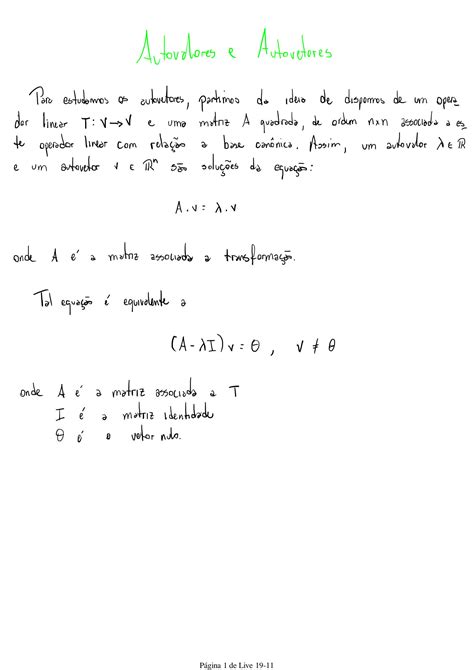 Autovalores e Autovetores
Para estudarmos os autovetores, partimos da ideia de dispormos de um opera
dor linear T: V→V e uma matriz A quadrada, de ordem n×n associada a es
te operador linear com relação a base canônica. Assim, um autovalor λ ∈ ℝ
e um autovetor v ∈ ℝⁿ são soluções da equação:
A.v = λ.v
onde A é a matriz associada a transformação.
Tal equação é equivalente a
(A-λI)v = θ , v ≠ θ
onde A é a matriz associada a T
I é a matriz identidade
θ é o vetor nulo.
Página 1 de Live 19-11